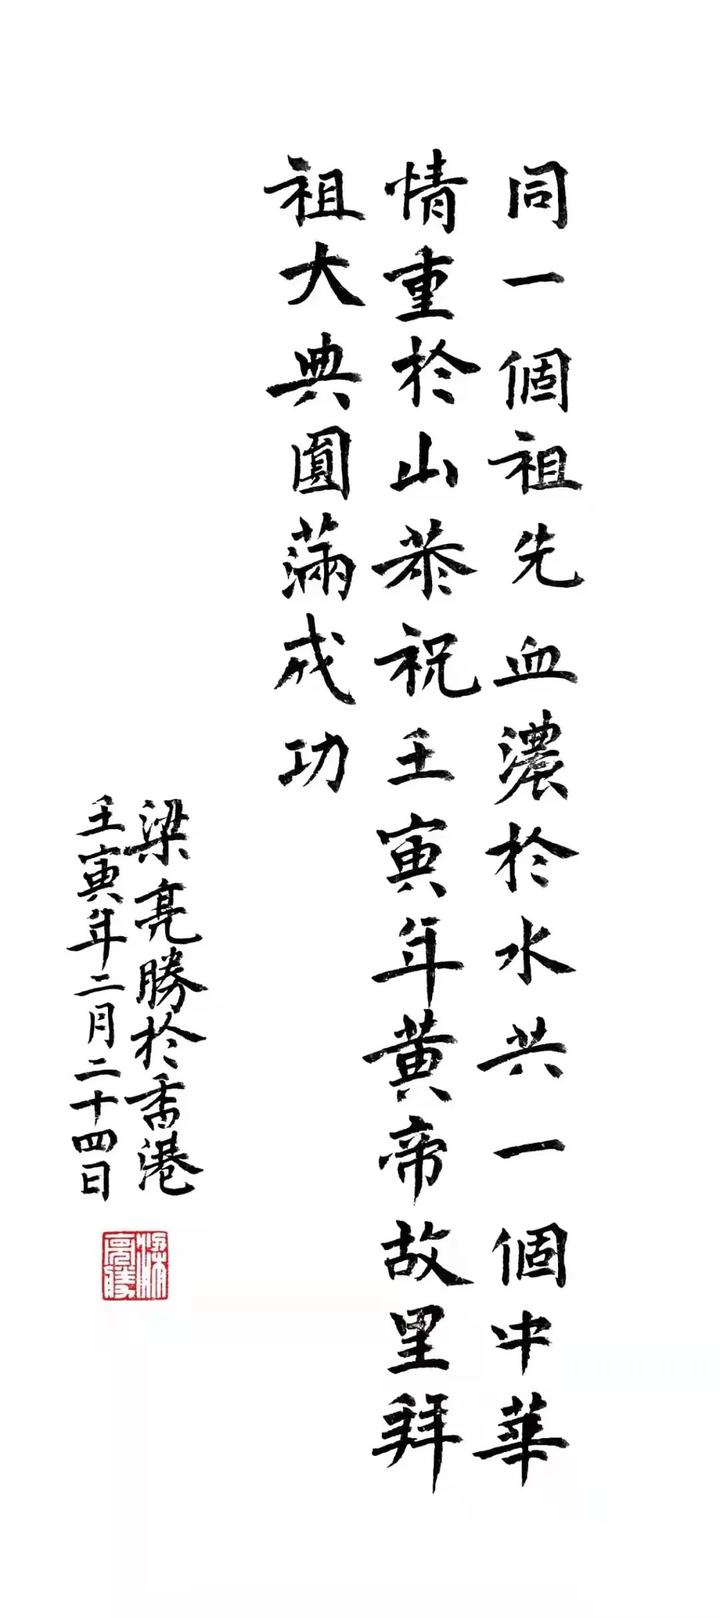 同一個祖先血濃於水共一個中華
情重於山恭祝壬寅年黄帝故里拜
祖大典圓滿成功
梁亮勝於香港
壬寅年二月二十四日
梁亮勝